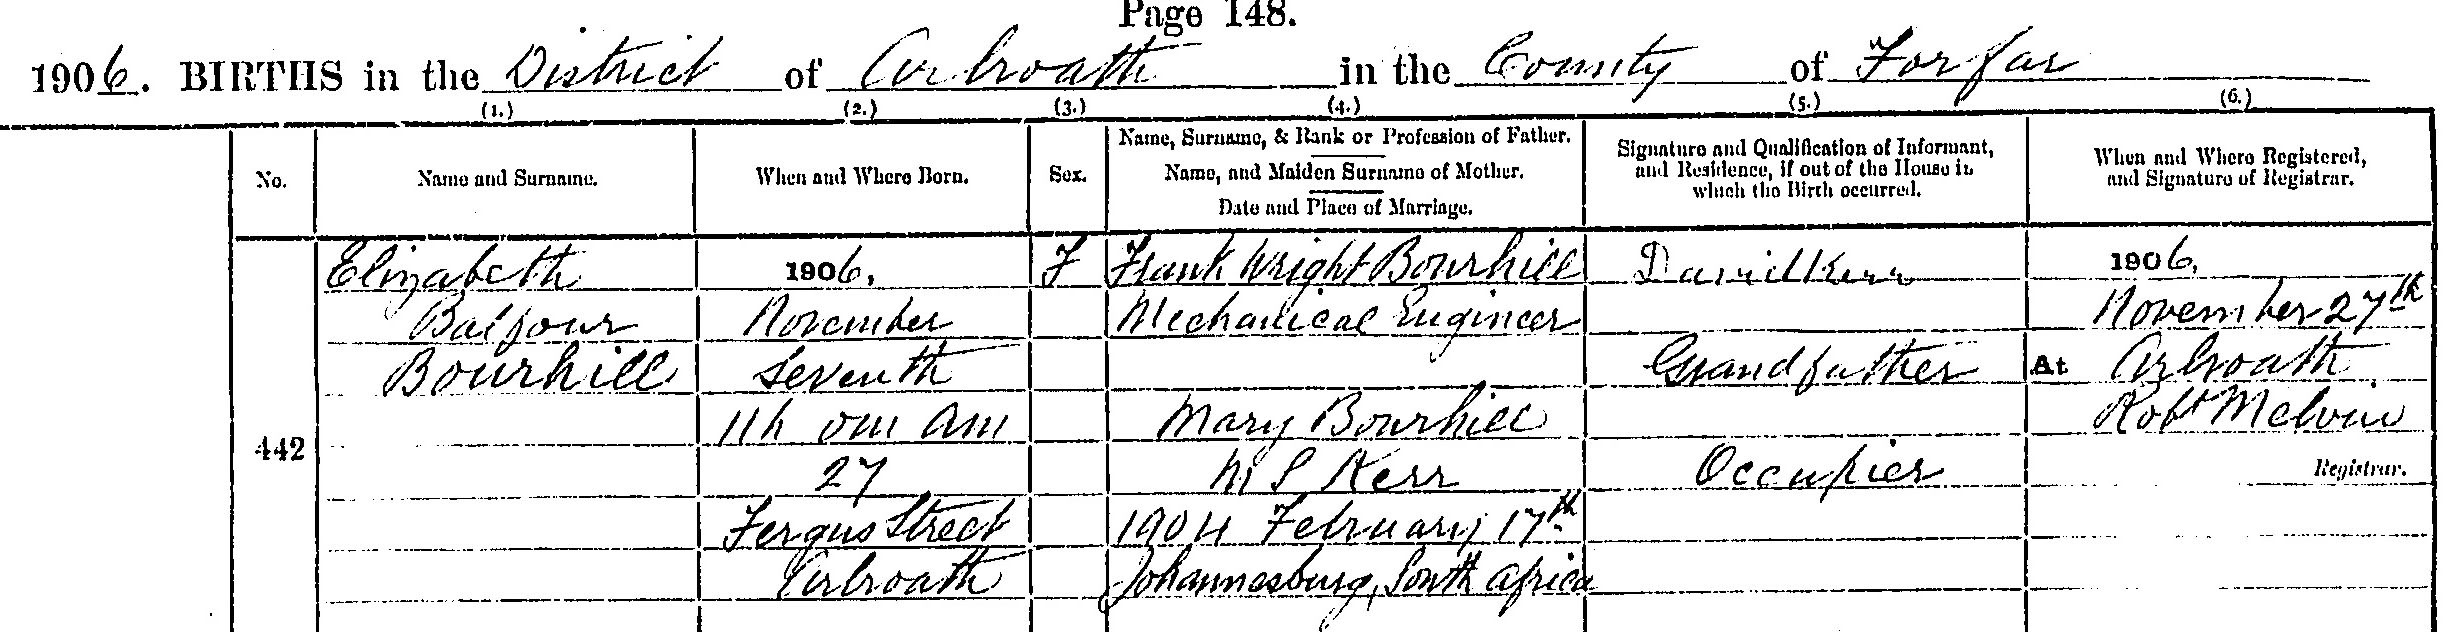 Page 148.
1906. BIRTHS in the District of Arbroath in the County of Forfar
(1.) (2.) (3.) (4.) (5.) (6.)
No.
Name and Surname.
When and Where Born.
Sex.
Name, Surname, & Rank or Profession of Father.
Name, and Maiden Surname of Mother.
Date and Place of Marriage.
Signature and Qualification of Informant,
and Residence, if out of the House in
which the Birth occurred.
When and Where Registered,
and Signature of Registrar.
442
Elizabeth
Balfour
Bourhill
1906,
November
Seventh
11h 0m am
27
Fergus Street
Arbroath
F
Frank Wright Bourhill
Mechanical Engineer
Mary Bourhill
M S Kerr
1904 February 17th
Johannesburg, South Africa
David Kerr
Grandfather
Occupier
1906,
November 27th
At Arbroath
Robt Melvin
Registrar.